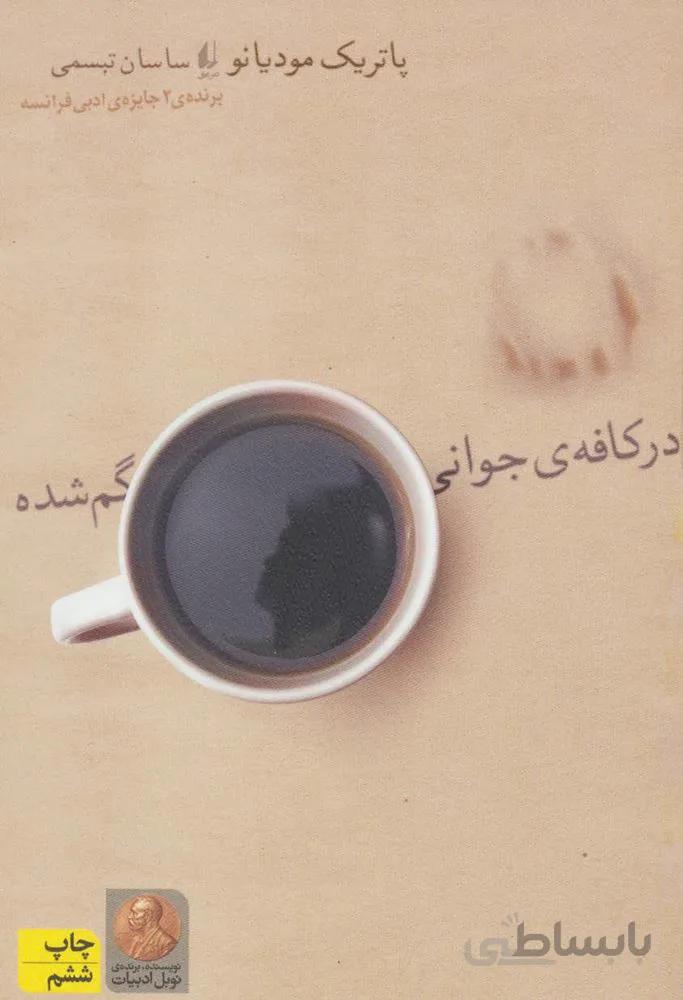 پاتریک مودیانو ساسان تبسمی
برنده‌ی ۲ جایزه‌ی ادبی فرانسه
در کافه‌ی جوانی گم‌شده
چاپ
ششم
نویسنده، برنده‌ی
نوبل ادبیات
بابساطی